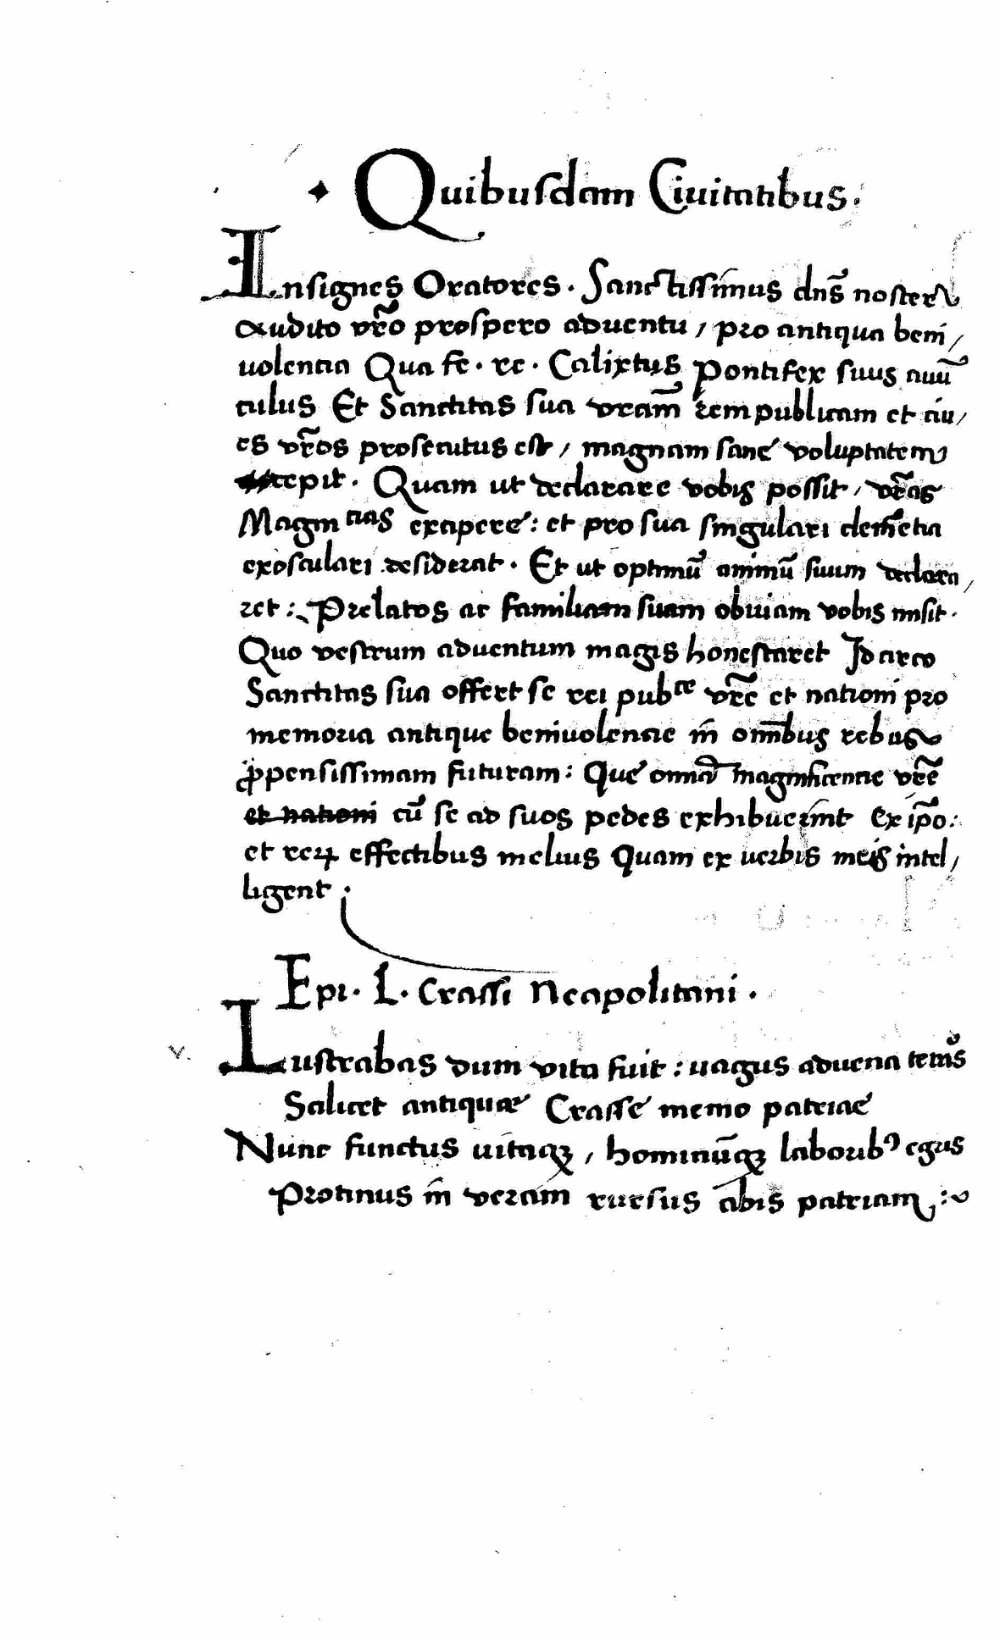 Quibusdam Ciuitatibus.
Insignes Oratores. Sanctissim̄us dn̄s noster
Audito vr̄o prospero aduentu / pro antiqua beni /
uolentia Qua fe. re. Calixtus pontifex suus auū
culus Et Sanctitas sua vram̄ rem publicam et ciu /
es vr̄os prosecutus est / magnam sane voluptatem
cepit. Quam ut declarare vobis possit / vr̄as
Magntias excipere: et pro sua singulari clemētia
exosculari desiderat. Et ut optimū animū suum declara /
ret: Prelatos ac familiam suam obuiam vobis misit.
Quo vestrum aduentum magis honestaret Idarco
Sanctitas sua offert se rei pubce vrē et nationi pro
memoria antique beniuolencie in om̄ibus rebus
ꝓpensissimam futuram: Que omnia magnificencie vrē
et nationi cū se ad suos pedes exhibuerint Ex ip̄o:
et reꝝ effectibus melius Quam ex uerbis meis intel /
ligent.
Epi. L. Crassi Neapolitani.
v. Lustrabas dum vita fuit: uagus aduena terras
Scilicet antiquae Crasse memo patriae
Nunc functus uitaqꝫ / hominūqꝫ laboribꝰ egus
Protinus in veram rursus abis patriam: